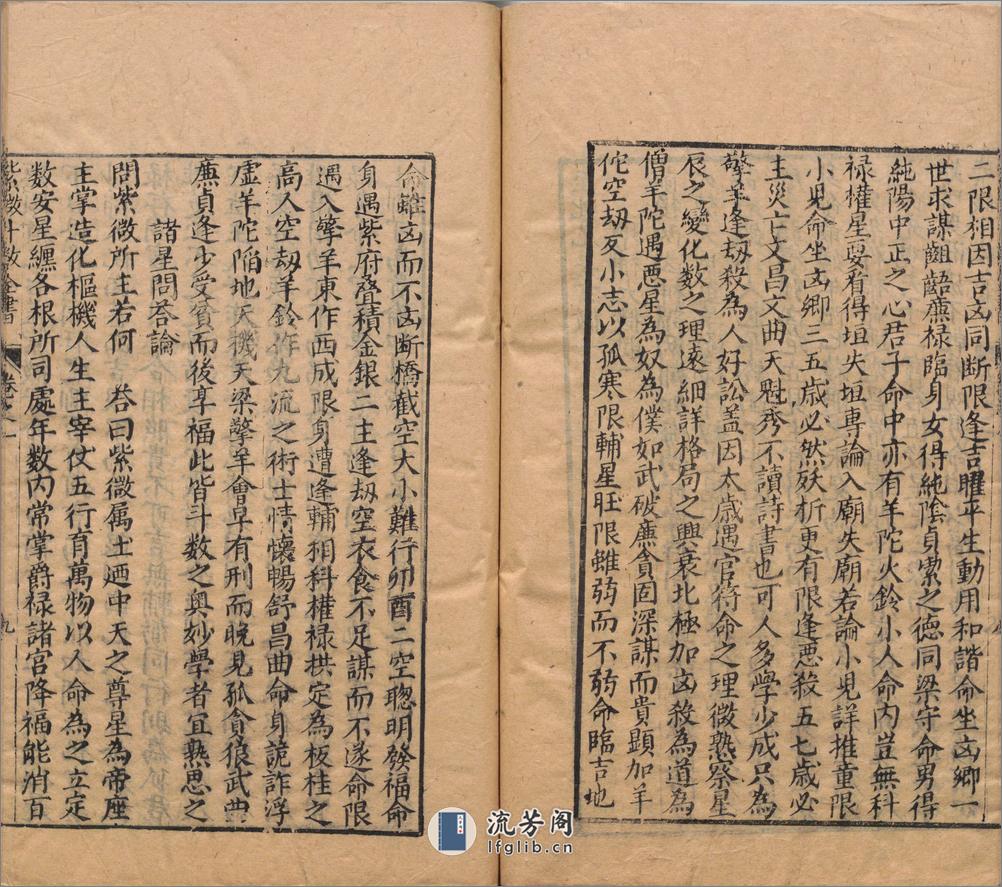 二限相因吉凶同斷限逢吉曜平生動用和諧命坐凶鄉一
世求謀齟齬廉祿臨身女得純陰貞潔之德同梁守命男得
純陽中正之心君子命中亦有羊陀火鈴小人命內豈無科
祿權星要看得垣失垣專論入廟失廟若論小兒詳推童限
小兒命坐凶鄉三五歲必然妖折更有限逢惡殺五七歲必
主災亡文昌文曲天魁秀不讀詩書也可人多學少成只為
擎羊逢劫殺為人好訟盖因太歲遇官符命之理微熟察星
辰之變化數之理遠細詳格局之興衰北極加凶殺為道為
僧羊陀遇惡星為奴為僕如武破廉貪固深謀而貴顯加羊
佗空刼反小志以孤寒限輔星旺限雖弱而不弱命臨吉地
命雖凶而不凶断橋截空大小難行卯酉二空聰明發福命
身遇紫府疊積金銀二主逢刼空衣食不足謀而不遂命限
遇入擎羊東作西成限身遭逢輔相科權祿拱定為板桂之
高人空刼羊鈴作九流之術士情懷暢舒昌曲命身詭詐浮
虛羊陀陷地天機天梁擎羊會早有刑而晚見孤貪狼武曲
廉貞逢少受貧而後享福此皆斗數之奧妙學者宜熟思之
諸星問荅論
問紫微所主若何　荅曰紫微属土廼中天之尊星為帝座
主掌造化樞機人生主宰仗五行育萬物以人命為之立定
数安星纏各根所司處年数内常掌爵禄諸宮降福能消百
紫微斗数全書
卷之一
九
流芳阁
lfglib.cn